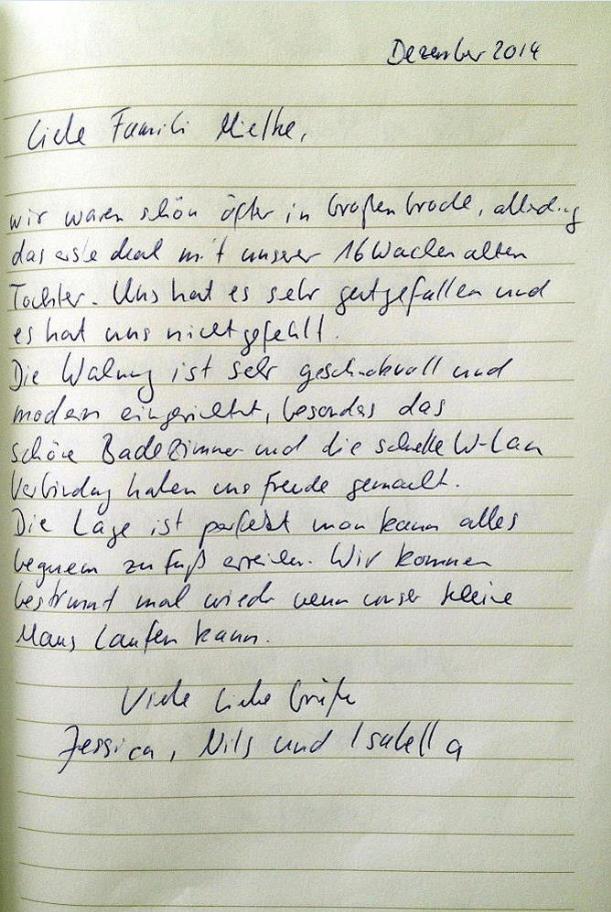 Dezember 2014
Liebe Famili Mielke,
wir waren schön öfter in Großenbrode, allerding
das erste Mal mit unserer 16 Wochen alten
Tochter. Uns hat es sehr gut gefallen und
es hat uns nicht gefehlt.
Die Wohnung ist sehr geschmackvoll und
modern eingerichtet, besonders das
schöne Badezimmer und die schnelle W-Lan
Verbindung haben uns Freude gemacht.
Die Lage ist perfekt man kann alles
bequem zu Fuß erreichen. Wir kommen
bestimmt mal wieder wenn unser kleine
Maus Laufen kann.
Viele Liebe Grüße
Jessica, Nils und Isabella